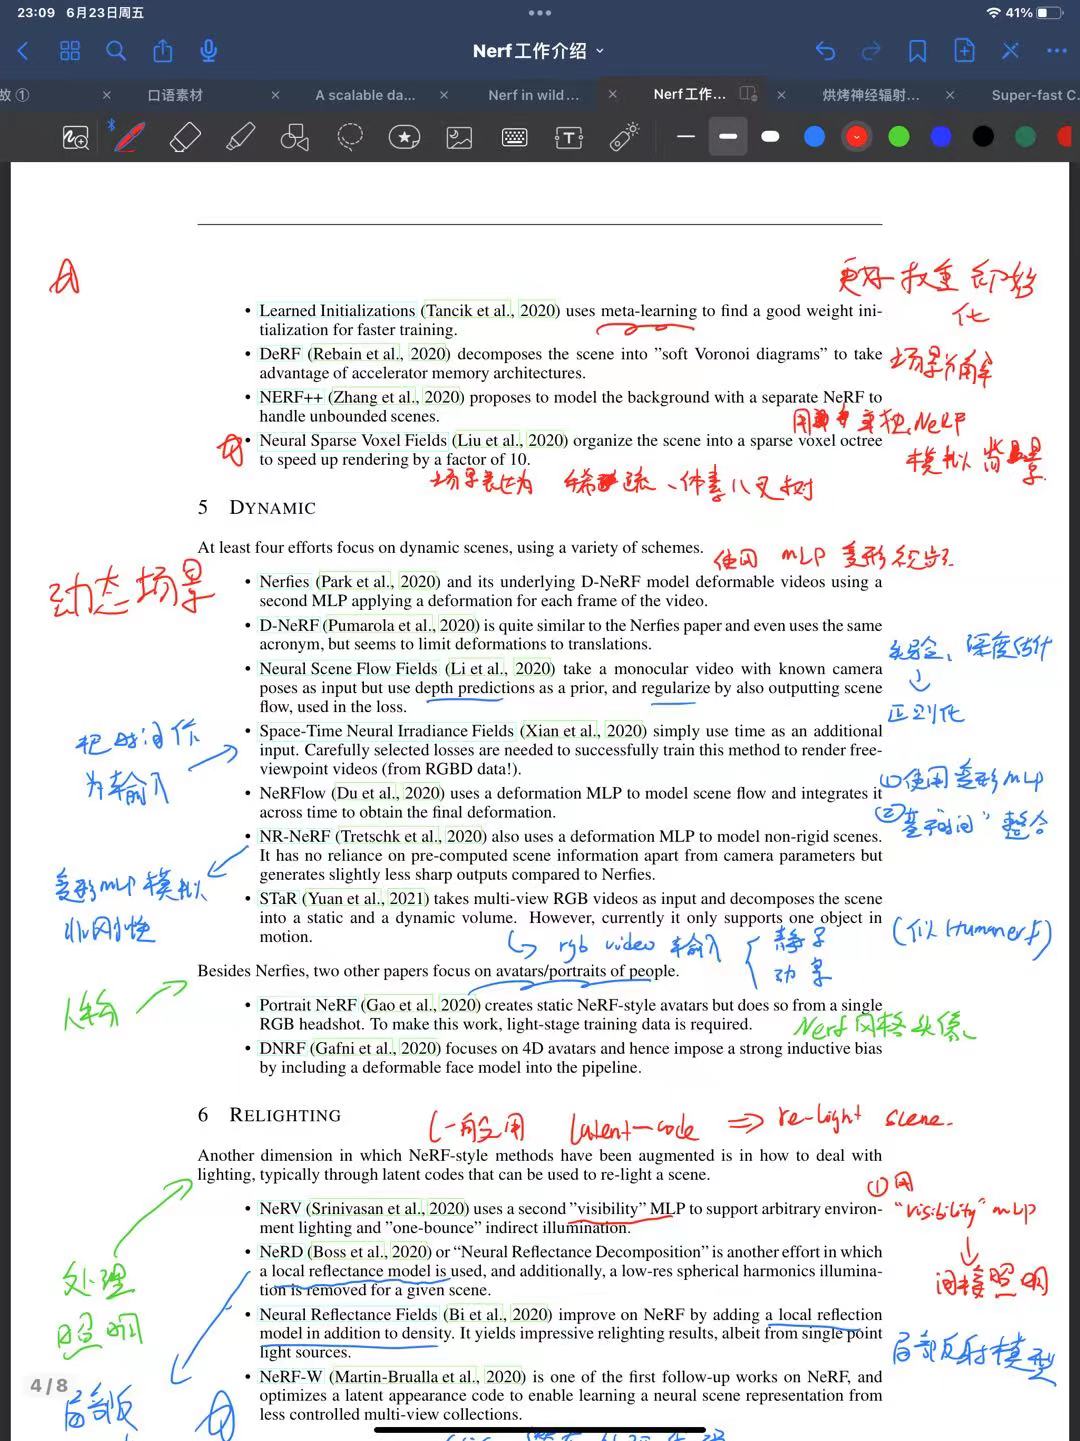 23:09 6月23日周五
41%
Nerf工作介绍
故 ①
口语素材
A scalable da...
Nerf in wild ...
Nerf工作...
烘烤神经辐射...
Super-fast C
更好权重初始
化
• Learned Initializations (Tancik et al., 2020) uses meta-learning to find a good weight ini-
tialization for faster training.
• DeRF (Rebain et al., 2020) decomposes the scene into ”soft Voronoi diagrams” to take
advantage of accelerator memory architectures.
场景分解
• NERF++ (Zhang et al., 2020) proposes to model the background with a separate NeRF to
handle unbounded scenes.
用 单独 NeRF
模拟背景
• Neural Sparse Voxel Fields (Liu et al., 2020) organize the scene into a sparse voxel octree
to speed up rendering by a factor of 10.
场景表达为 稀疏、体素八叉树
5 DYNAMIC
At least four efforts focus on dynamic scenes, using a variety of schemes.
使用 MLP 变形视频
动态场景
• Nerfies (Park et al., 2020) and its underlying D-NeRF model deformable videos using a
second MLP applying a deformation for each frame of the video.
• D-NeRF (Pumarola et al., 2020) is quite similar to the Nerfies paper and even uses the same
acronym, but seems to limit deformations to translations.
• Neural Scene Flow Fields (Li et al., 2020) take a monocular video with known camera
poses as input but use depth predictions as a prior, and regularize by also outputting scene
flow, used in the loss.
先验、深度估计
正则化
把时间作
为输入
• Space-Time Neural Irradiance Fields (Xian et al., 2020) simply use time as an additional
input. Carefully selected losses are needed to successfully train this method to render free-
viewpoint videos (from RGBD data!).
• NeRFlow (Du et al., 2020) uses a deformation MLP to model scene flow and integrates it
across time to obtain the final deformation.
①使用变形MLP
②基于“时间” 整合
• NR-NeRF (Tretschk et al., 2020) also uses a deformation MLP to model non-rigid scenes.
It has no reliance on pre-computed scene information apart from camera parameters but
generates slightly less sharp outputs compared to Nerfies.
变形MLP模拟
非刚性
• STaR (Yuan et al., 2021) takes multi-view RGB videos as input and decomposes the scene
into a static and a dynamic volume. However, currently it only supports one object in
motion.
rgb video 输入
静景
动景
(似Humnerf)
Besides Nerfies, two other papers focus on avatars/portraits of people.
人物
• Portrait NeRF (Gao et al., 2020) creates static NeRF-style avatars but does so from a single
RGB headshot. To make this work, light-stage training data is required.
Nerf风格头像
• DNRF (Gafni et al., 2020) focuses on 4D avatars and hence impose a strong inductive bias
by including a deformable face model into the pipeline.
6 RELIGHTING
(一般用 latent-code ⇒ re-light scene.
Another dimension in which NeRF-style methods have been augmented is in how to deal with
lighting, typically through latent codes that can be used to re-light a scene.
处理
照明
• NeRV (Srinivasan et al., 2020) uses a second ”visibility” MLP to support arbitrary environ-
ment lighting and ”one-bounce” indirect illumination.
①用
“visibility” MLP
间接照明
• NeRD (Boss et al., 2020) or “Neural Reflectance Decomposition” is another effort in which
a local reflectance model is used, and additionally, a low-res spherical harmonics illumina-
tion is removed for a given scene.
• Neural Reflectance Fields (Bi et al., 2020) improve on NeRF by adding a local reflection
model in addition to density. It yields impressive relighting results, albeit from single point
light sources.
局部反射模型
• NeRF-W (Martin-Brualla et al., 2020) is one of the first follow-up works on NeRF, and
optimizes a latent appearance code to enable learning a neural scene representation from
less controlled multi-view collections.
4/8
局部反